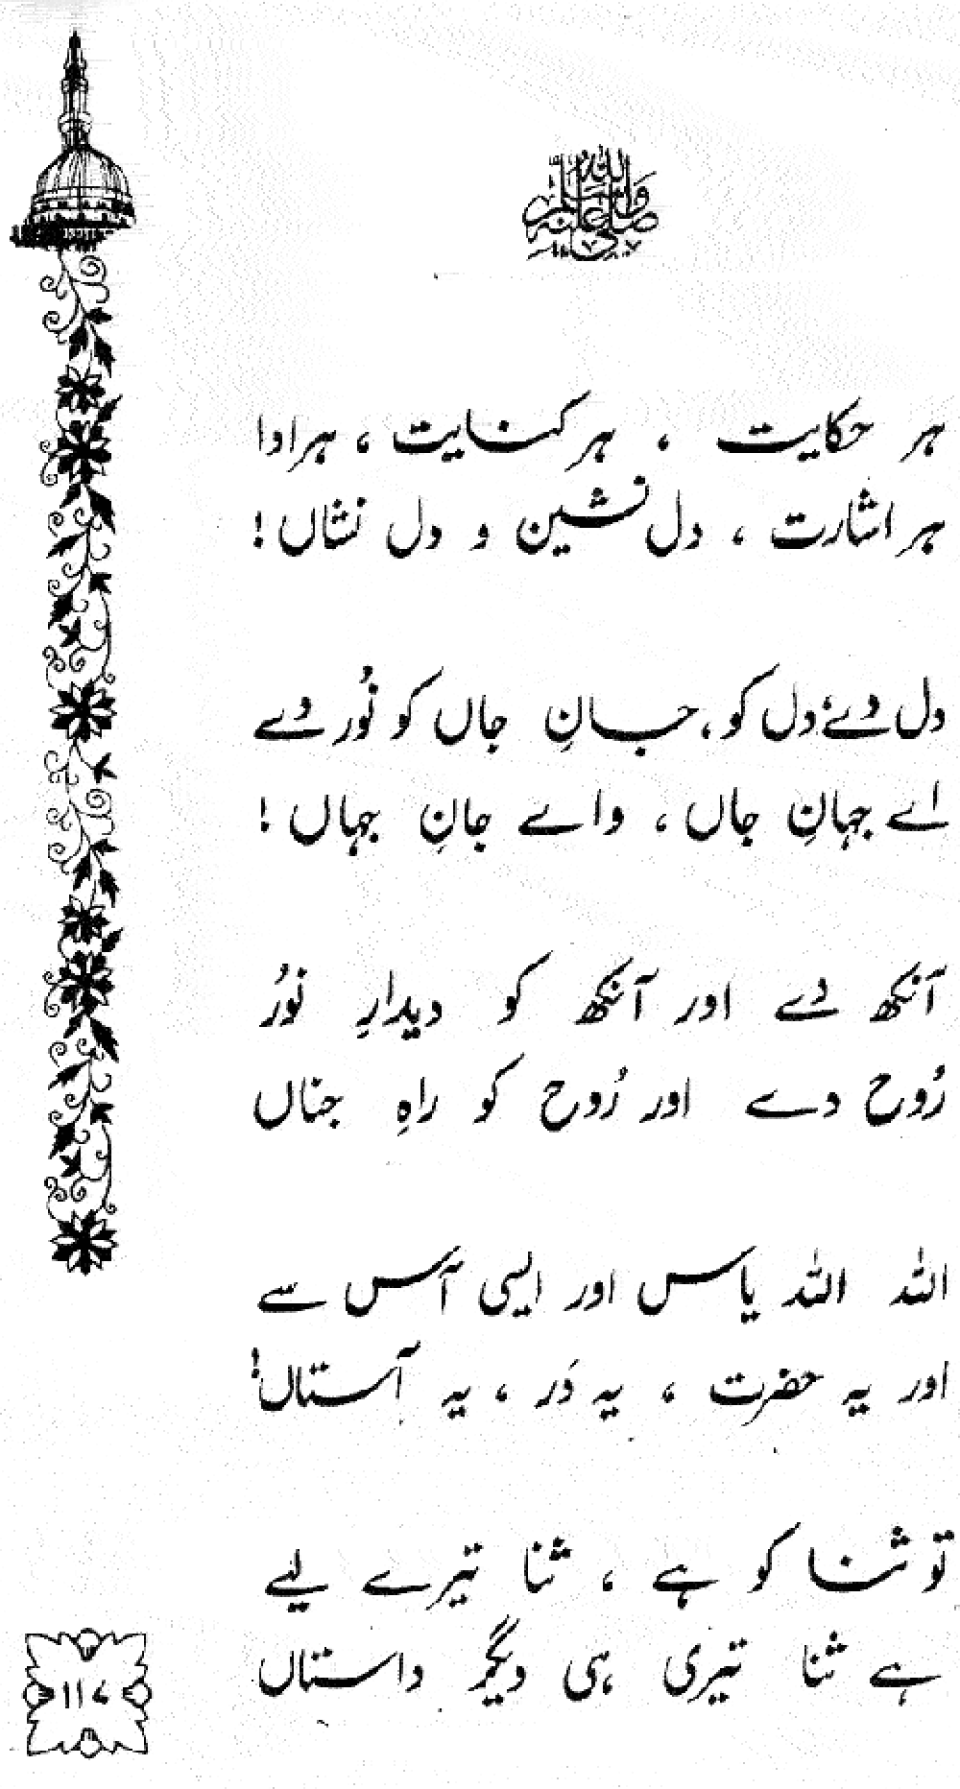 صلی اللہ علیہ وآلہ وسلم
ہر حکایت ، ہر کنایت ، ہر ادا
ہر اشارت ، دل نشین و دل نشاں !
دل دے دل کو، جانِ جاں کو نُور دے
اے جہانِ جاں ، واے جانِ جہاں !
آنکھ دے اور آنکھ کو دیدارِ نورُ
رُوح دے اور رُوح کو راہِ جناں
اللہ اللہ یاس اور ایسی آس سے
اور یہ حضرت ، یہ دَر ، یہ آستاں!
تو ثنا کو ہے ، ثنا تیرے لیے
ہے ثنا تیری ہی دیگر داستاں
۱۱۷